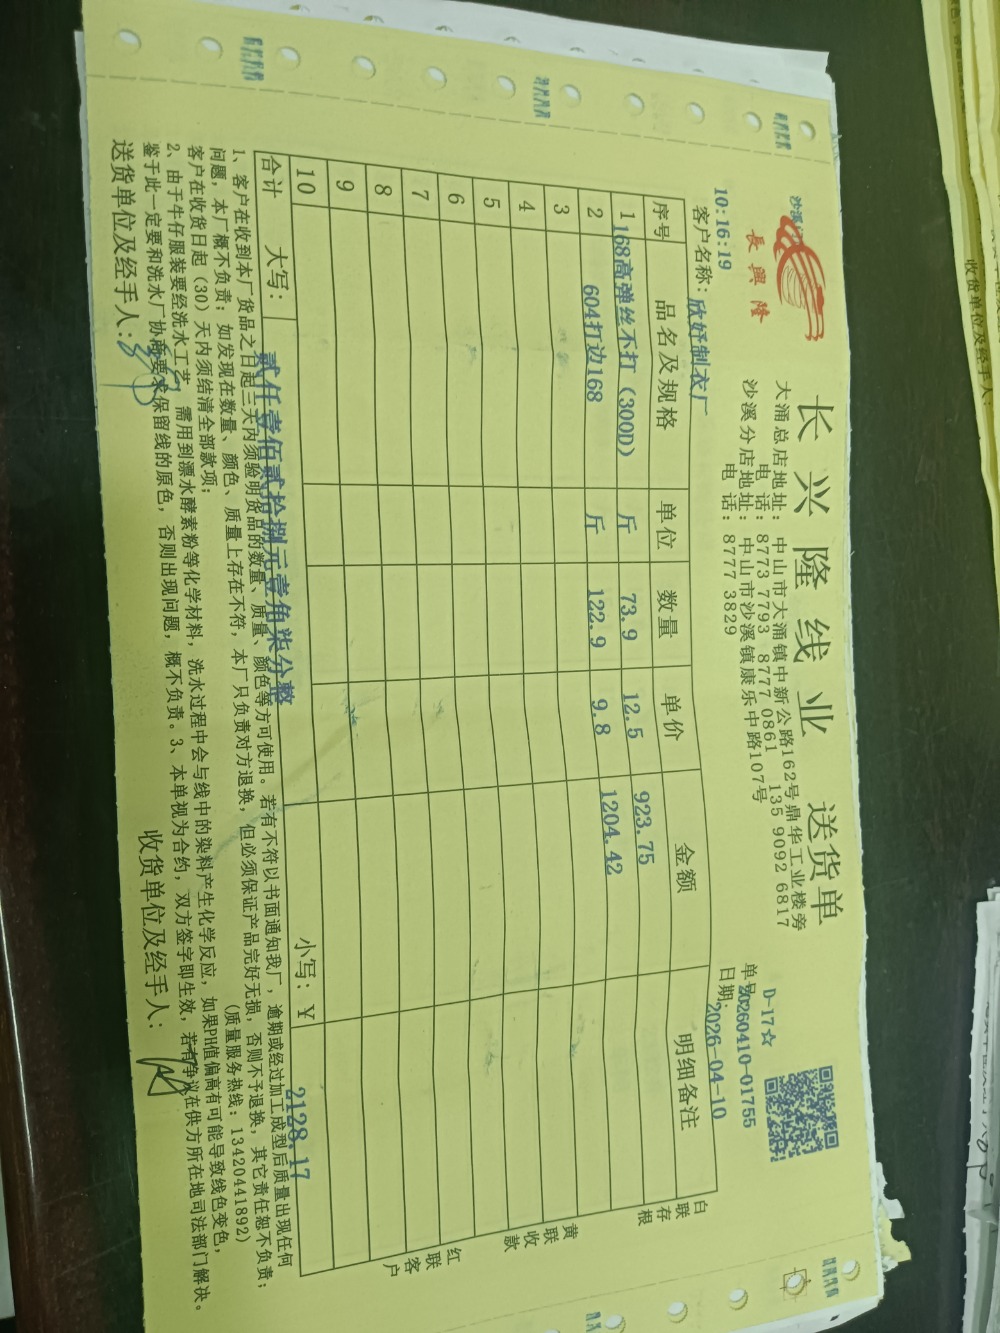 長興隆
长兴隆线业 送货单
大涌总店地址：中山市大涌镇中新公路162号鼎华工业楼旁
电 话：8773 7793 8777 0861 135 9092 6817
沙溪分店地址：中山市沙溪镇康乐中路107号
电 话：8777 3829
D-17☆
单号：20260410-01755
日期：2026-04-10
10:16:19
客户名称：欣妤制衣厂
序号 品名及规格 单位 数量 单价 金额 明细备注
1 168高弹丝不打（300D） 斤 73.9 12.5 923.75
2 604打边168 斤 122.9 9.8 1204.42
3
4
5
6
7
8
9
10
合计 大写：贰仟壹佰贰拾捌元壹角柒分整 小写：￥2128.17
白联存根
黄联收款
红联客户
1、客户在收到本厂货品之日起三天内须验明货品的数量、质量、颜色等方可使用。若有不符以书面通知我厂，逾期或经过加工成型后质量出现任何
问题，本厂概不负责；如发现在数量、颜色、质量上存在不符，本厂只负责对方退换，但必须保证产品完好无损，否则不予退换，其它责任恕不负责；
客户在收货日起（30）天内须结清全部款项； （质量服务热线：13420441892）
2、由于牛仔服装要经洗水工艺，需用到漂水酵素粉等化学材料，洗水过程中会与线中的染料产生化学反应，如果PH值偏高有可能导致线色变色，
鉴于此一定要和洗水厂协商要求保留线的原色，否则出现问题，概不负责。3、本单视为合约，双方签字即生效，若有争议在供方所在地司法部门解决。
送货单位及经手人： 收货单位及经手人：
收货单位及经手人：